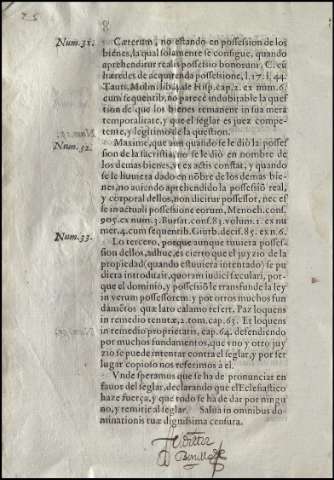 Num.31.
Cæterum, no estando en possession de los
bienes, la qual solamente se consigue, quando
aprehenditur realis possessio bonorum, C. cū
hæredes de acquirenda possessione, l. 17. l. 44.
Tauri, Molin. lib. 4. de Hisp. cap. 2. ex num. 6.
cum sequentib. no parece indubitable la quest
tion de que los bienes remanent in sua mera
temporalitate, y que el seglar es juez compe-
tente, y legitimo de la question.
Num.32.
Maxime, que aun quando se le diò la posses
sion de la sacristia, no se le diò en nombre
de los demas bienes, y ex actis constat, y quando
se le huuiera dado en nōbre de los demas bie-
nes, no auiendo aprehendido la possessiō real,
y corporal dellos, non dicitur possessor, nec es
se in actuali possessione eorum, Menoch. conf.
905. ex num. 3. Bursat. conf. 83. volum. 1. ex nu
mer. 4. cum sequentib. Giurb. decis. 85. ex n. 6.
Num.33.
Lo tercero, porque aunque tuuiera posses-
sion dellos, adhuc, es cierto que el juyzio de la
propiedad (quando estuuiera intentado) se pu
diera introduzir, quoram iudici sæculari, por-
que el dominio, y possessiō le transfunde la ley
in verum possessorem, y por otros muchos fun
damētos, que lato calamo refert. Paz loquens
in remedio tenutæ, 2. tom. cap. 65. Et loquens
in remedio proprietatis, cap. 64. defendiendo
por muchos fundamentos, que vno y otro juy
zio se puede intentar contra el seglar, y por ser
lugar copioso nos referimos à el.
Vnde speramus que se ha de pronunciar en
fauor del seglar, declarando que el Eclesiastico
haze fuerça, y que todo se ha de dar por ningu
no, y remitir al seglar. Salua in omnibus do-
minationis tuæ dignissima censura.